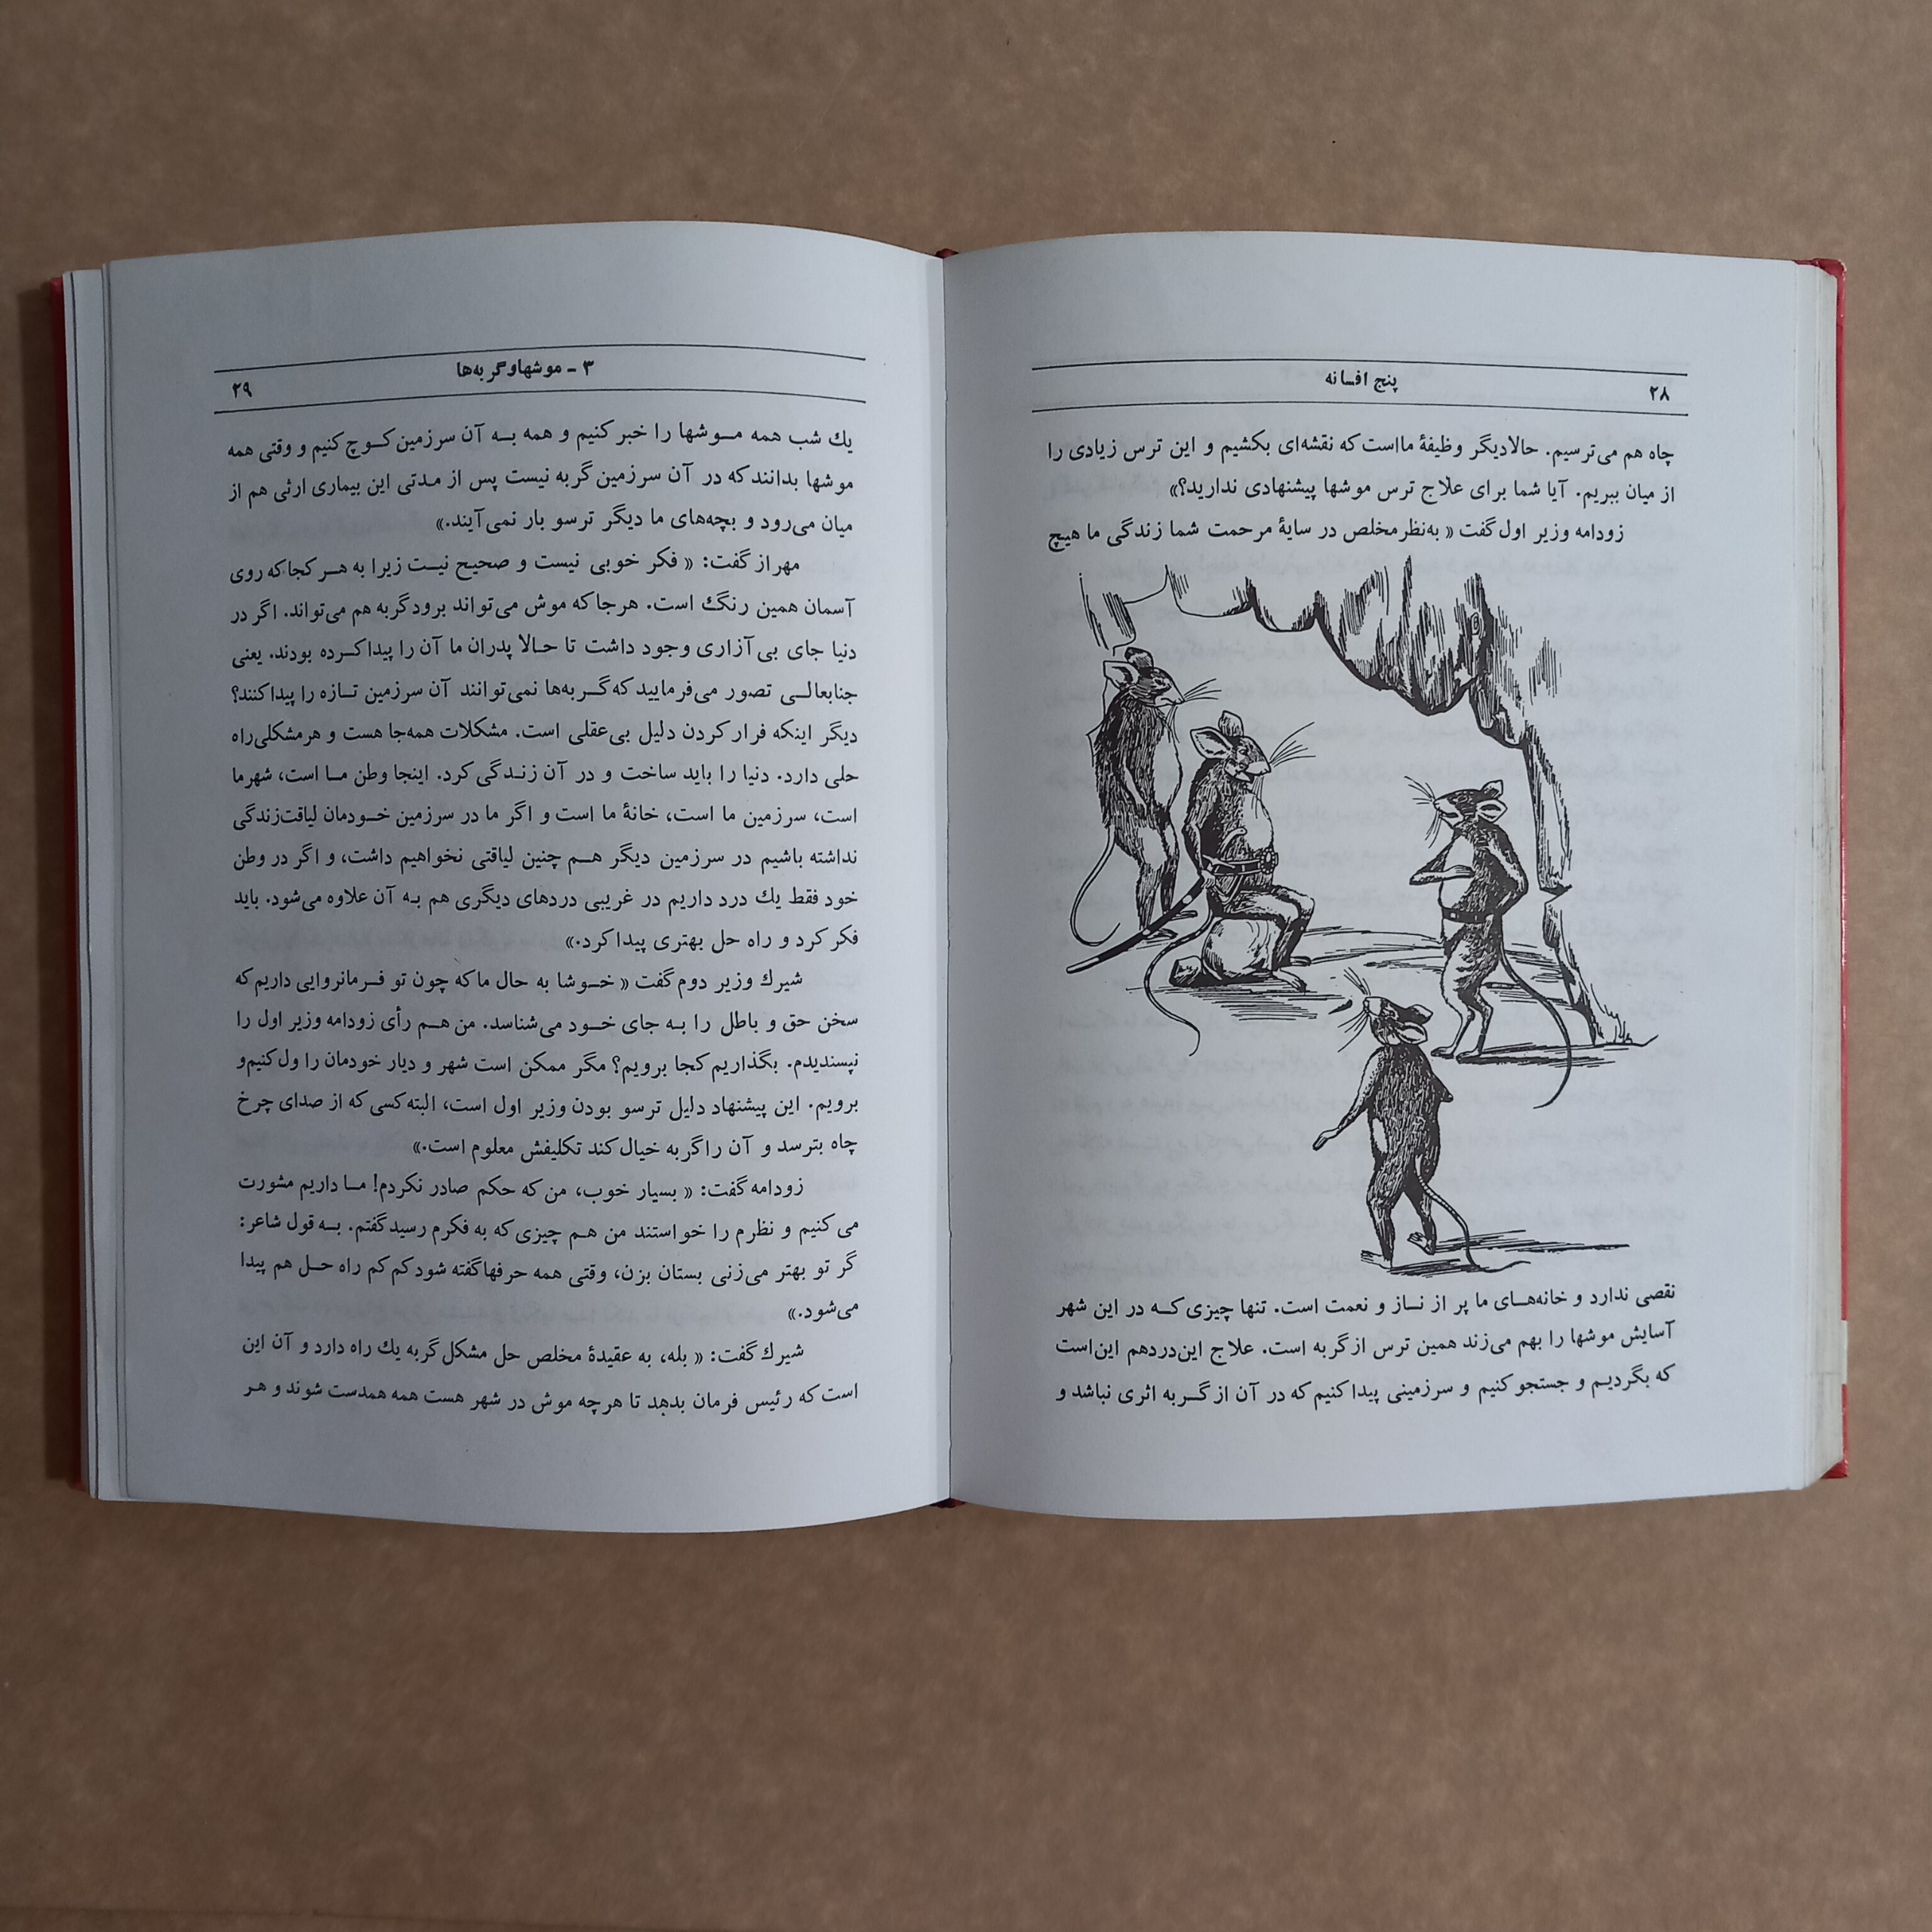 ۲۸
پنج افسانه
چاه هم می‌ترسیم. حالادیگر وظیفهٔ مااست که نقشه‌ای بکشیم و این ترس زیادی را
از میان ببریم. آیا شما برای علاج ترس موشها پیشنهادی ندارید؟»
زودامه وزیر اول گفت « به‌نظر مخلص در سایهٔ مرحمت شما زندگی ما هیچ
نقصی ندارد و خانه‌های ما پر از ناز و نعمت است. تنها چیزی که در این شهر
آسایش موشها را بهم می‌زند همین ترس از گربه است. علاج این‌دردهم این‌است
که بگردیم و جستجو کنیم و سرزمینی پیدا کنیم که در آن از گربه اثری نباشد و
۳ ـ موشهاوگربه‌ها
۲۹
یك شب همه موشها را خبر کنیم و همه به آن سرزمین کوچ کنیم و وقتی همه
موشها بدانند که در آن سرزمین گربه نیست پس از مدتی این بیماری ارثی هم از
میان می‌رود و بچه‌های ما دیگر ترسو بار نمی‌آیند.»
مهراز گفت: « فکر خوبی نیست و صحیح نیست زیرا به هر کجا که روی
آسمان همین رنگ است. هرجا که موش می‌تواند برود گربه هم می‌تواند. اگر در
دنیا جای بی‌آزاری وجود داشت تا حالا پدران ما آن را پیدا کرده بودند. یعنی
جنابعالی تصور می‌فرمایید که گربه‌ها نمی‌توانند آن سرزمین تازه را پیدا کنند؟
دیگر اینکه فرار کردن دلیل بی‌عقلی است. مشکلات همه‌جا هست و هرمشکلی راه
حلی دارد. دنیا را باید ساخت و در آن زندگی کرد. اینجا وطن ما است، شهرما
است، سرزمین ما است، خانهٔ ما است و اگر ما در سرزمین خودمان لیاقت‌زندگی
نداشته باشیم در سرزمین دیگر هم چنین لیاقتی نخواهیم داشت، و اگر در وطن
خود فقط یك درد داریم در غریبی دردهای دیگری هم به آن علاوه می‌شود. باید
فکر کرد و راه حل بهتری پیدا کرد.»
شیرك وزیر دوم گفت « خوشا به حال ما که چون تو فرمانروایی داریم که
سخن حق و باطل را به جای خود می‌شناسد. من هم رأی زودامه وزیر اول را
نپسندیدم. بگذاریم کجا برویم؟ مگر ممکن است شهر و دیار خودمان را ول کنیم‌و
برویم. این پیشنهاد دلیل ترسو بودن وزیر اول است، البته کسی که از صدای چرخ
چاه بترسد و آن را گربه خیال کند تکلیفش معلوم است.»
زودامه گفت: « بسیار خوب، من که حکم صادر نکردم! ما داریم مشورت
می کنیم و نظرم را خواستند من هم چیزی که به فکرم رسید گفتم. به قول شاعر:
گر تو بهتر می‌زنی بستان بزن، وقتی همه حرفها گفته شود کم کم راه حل هم پیدا
می‌شود.»
شیرك گفت: « بله، به عقیدهٔ مخلص حل مشکل گربه یك راه دارد و آن این
است که رئیس فرمان بدهد تا هرچه موش در شهر هست همه همدست شوند و هر